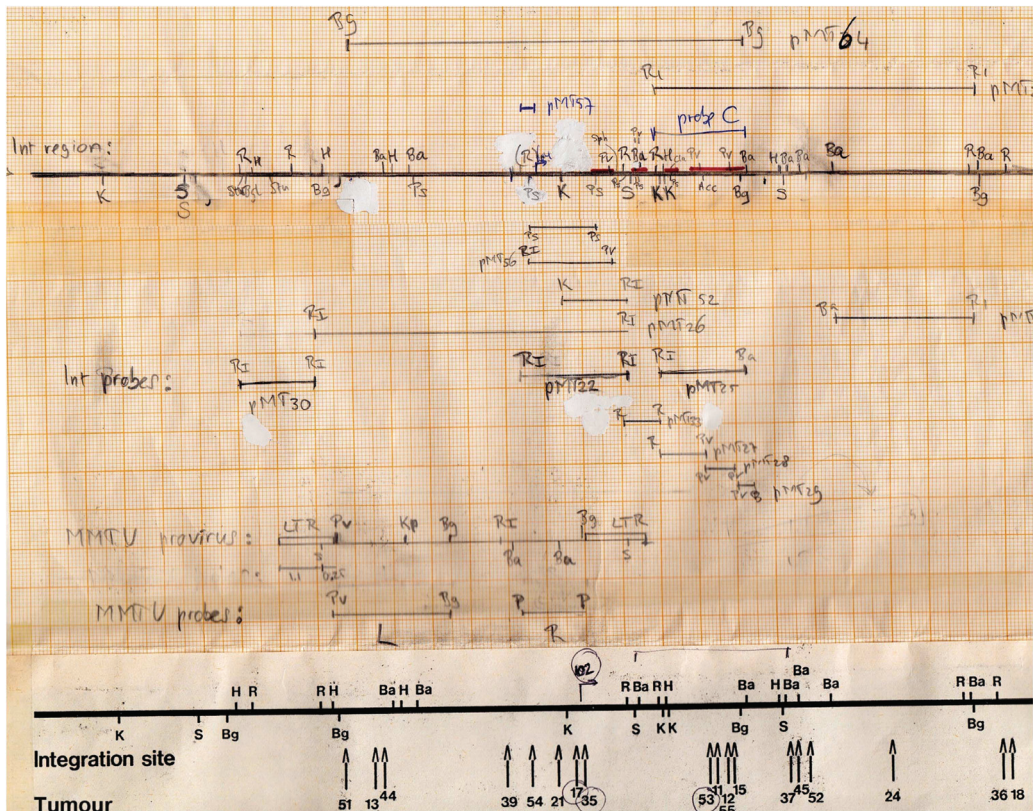 Bg Bg pMT64
R1 R1
pMT57 probe C
Int region:
R H R H Ba H Ba (R) Sph Pv R Ba R H Pv Pv Ba H Ba Pv Ba R Ba R
K S Bg Ps Ps K Ps S K K Acc Bg S Bg
S
Ps Ps
pMT56 RI Pv
K RI pMT52
RI RI pMT26 Ba R1
Int probes: RI RI RI RI RI Ba
pMT30 pMT22 pMT25
R R pMT33
R Pv pMT27
Pv Pv pMT28
Pv B pMT29
MMTU provirus: LTR Pv Kp Bg RI Bg LTR
S Ba Ba S
1,1 0,25
MMTU probes: Pv Bg P P
L R
102
H R R H Ba H Ba R Ba R H Ba H Ba Ba Ba R Ba R
K S Bg Bg K S K K Bg S Bg
Integration site
51 13 44 39 54 21 17 35 53 11 12 55 15 37 45 52 24 36 18
Tumour